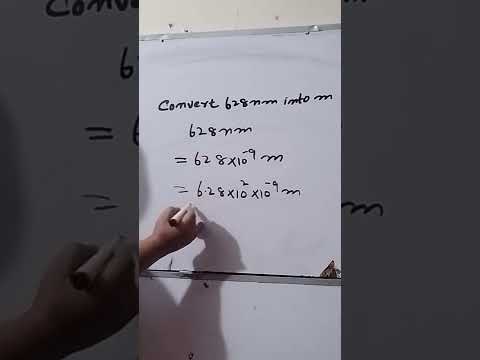 Convert 628nm into m
628nm
= 628×10⁻⁹ m
= 6.28×10²×10⁻⁹ m